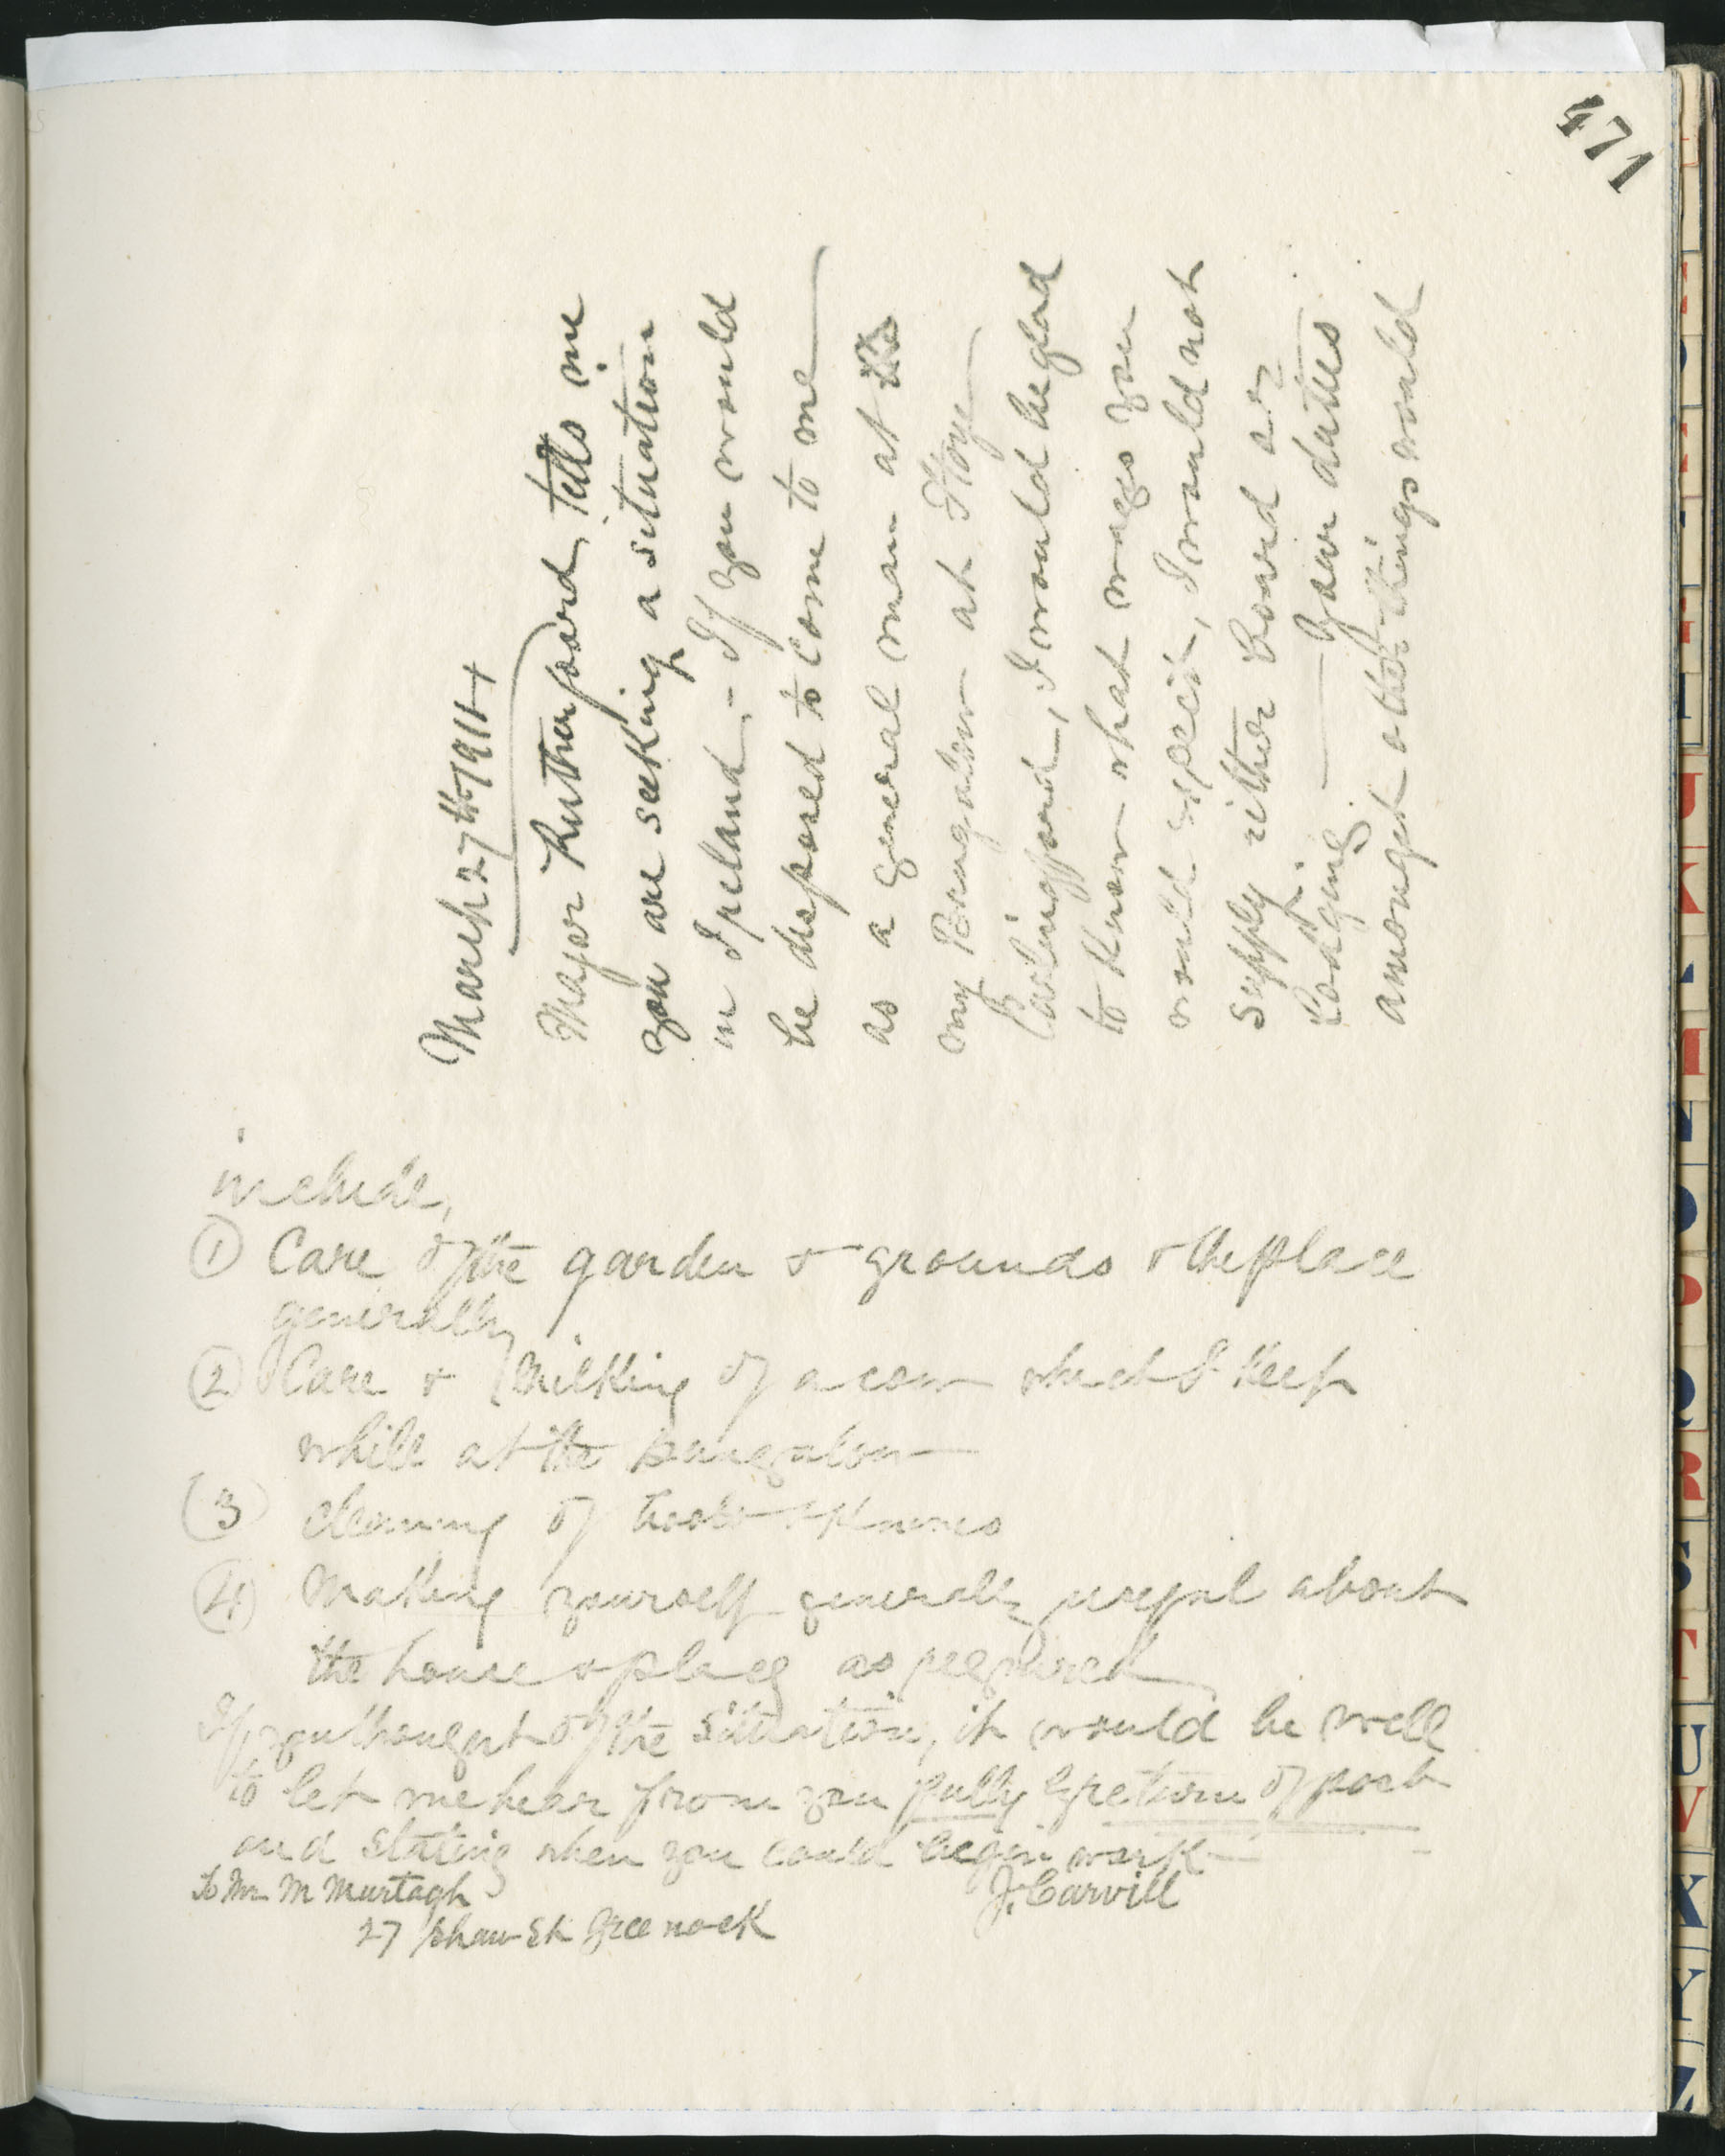 471
March 27th 1914
Major Rutherford, tells me
you are seeking a situation
in Ireland, - If you would
be disposed to come to me
as a general man at
my Bungalow at
Carlingford, I would be glad
to know what wages you
would expect, I would not
supply either board or
Lodging — Your duties
amongst other things would
include,
① Care of the garden & grounds & the place
generally
② Care & Milking of a cow which I keep
while at the bungalow
(3) cleaning of boots & knives
(4) Making yourself generally useful about
the house & place as required
If you thought of the situation, it would be well
to let me hear from you fully by return of post
and stating when you could begin work
To Mr M Murtagh J. Carvill
27 Shaw St Greenock